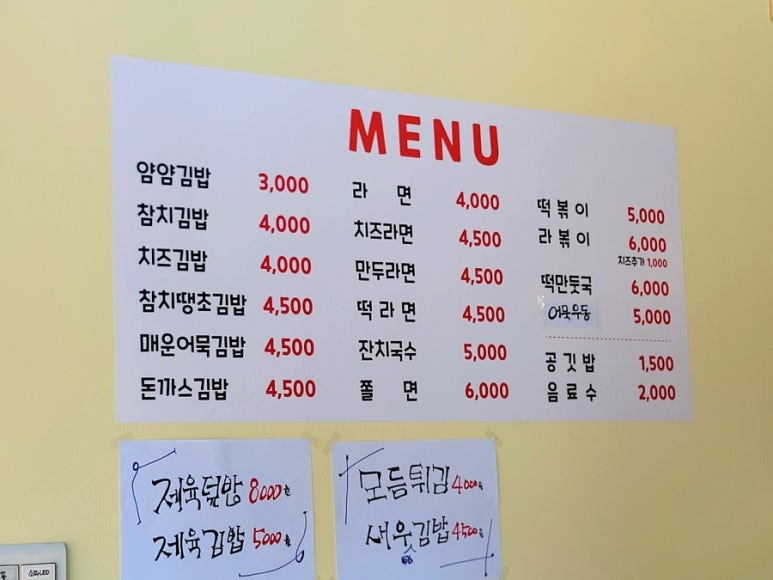 MENU
얌얌김밥 3,000
참치김밥 4,000
치즈김밥 4,000
참치땡초김밥 4,500
매운어묵김밥 4,500
돈까스김밥 4,500
라 면 4,000
치즈라면 4,500
만두라면 4,500
떡라면 4,500
잔치국수 5,000
쫄 면 6,000
떡볶이 5,000
라볶이 6,000
치즈추가 1,000
떡만둣국 6,000
어묵우동 5,000
공깃밥 1,500
음료수 2,000
제육덮밥 8000원
제육김밥 5000원
모듬튀김 4000원
새웃김밥 4500원